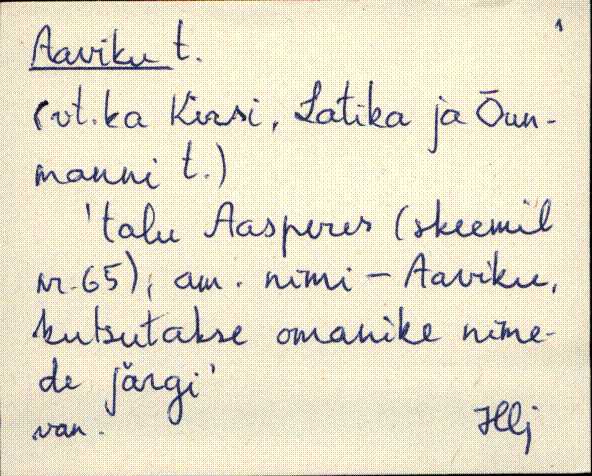 1
Aaviku t.
(vt. ka Kirsi, Latika ja Õun-
manni t.)
'talu Aasperes (skeemil
nr. 65), am. nimi – Aaviku,
kutsutakse omanike nime-
de järgi'
van.
Hlj